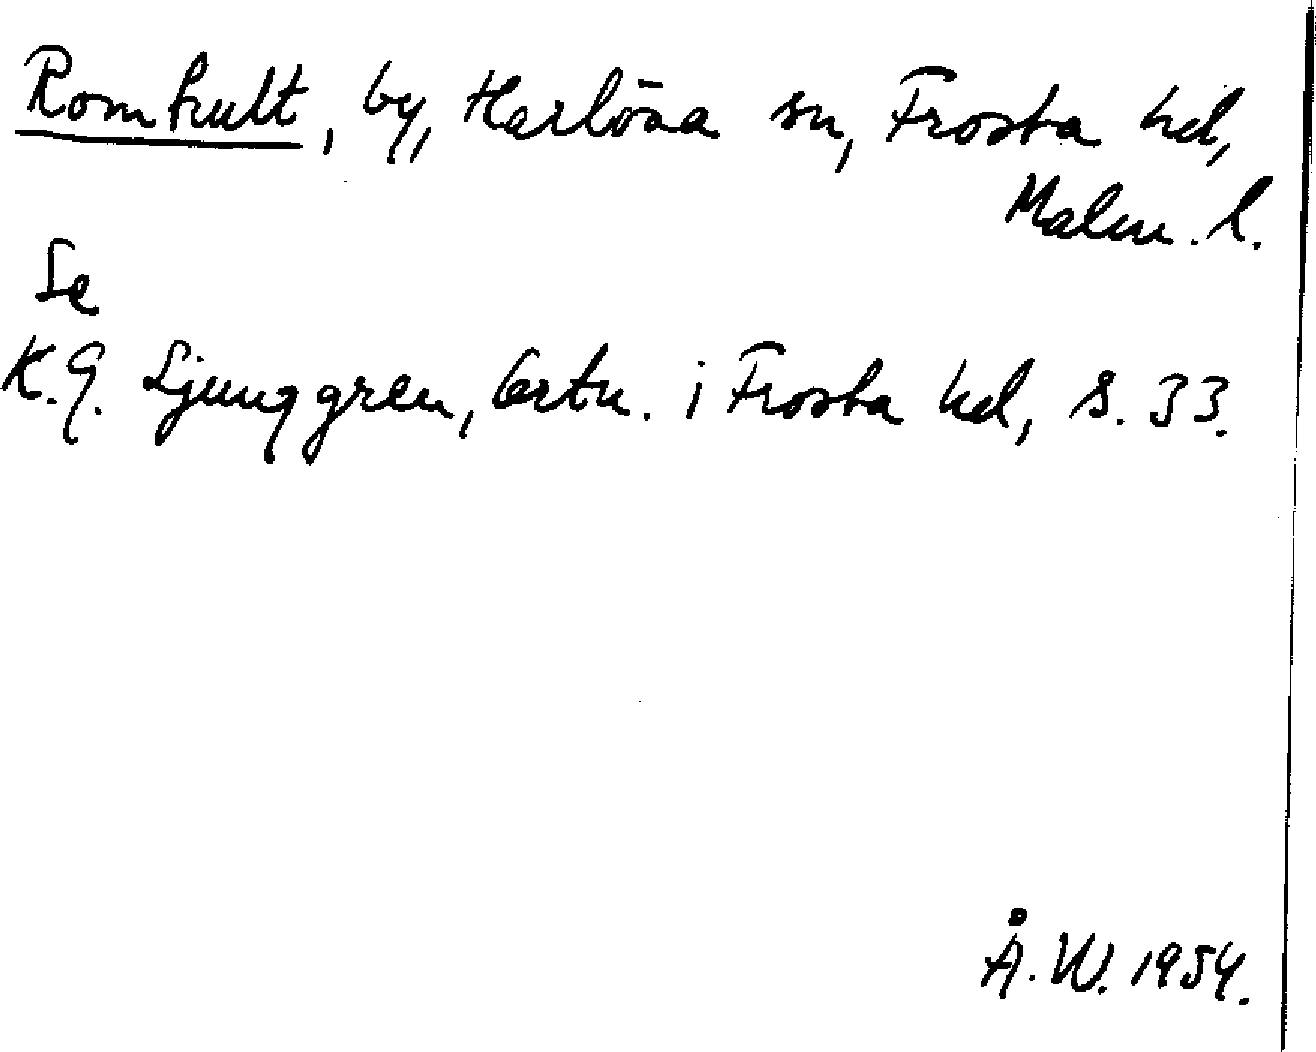 Romhult, by, Harlösa sn, Frosta hd,
Malm. l.
Se
K.G. Ljunggren, Ortn. i Frosta hd, s. 33.
Å. W. 1954.